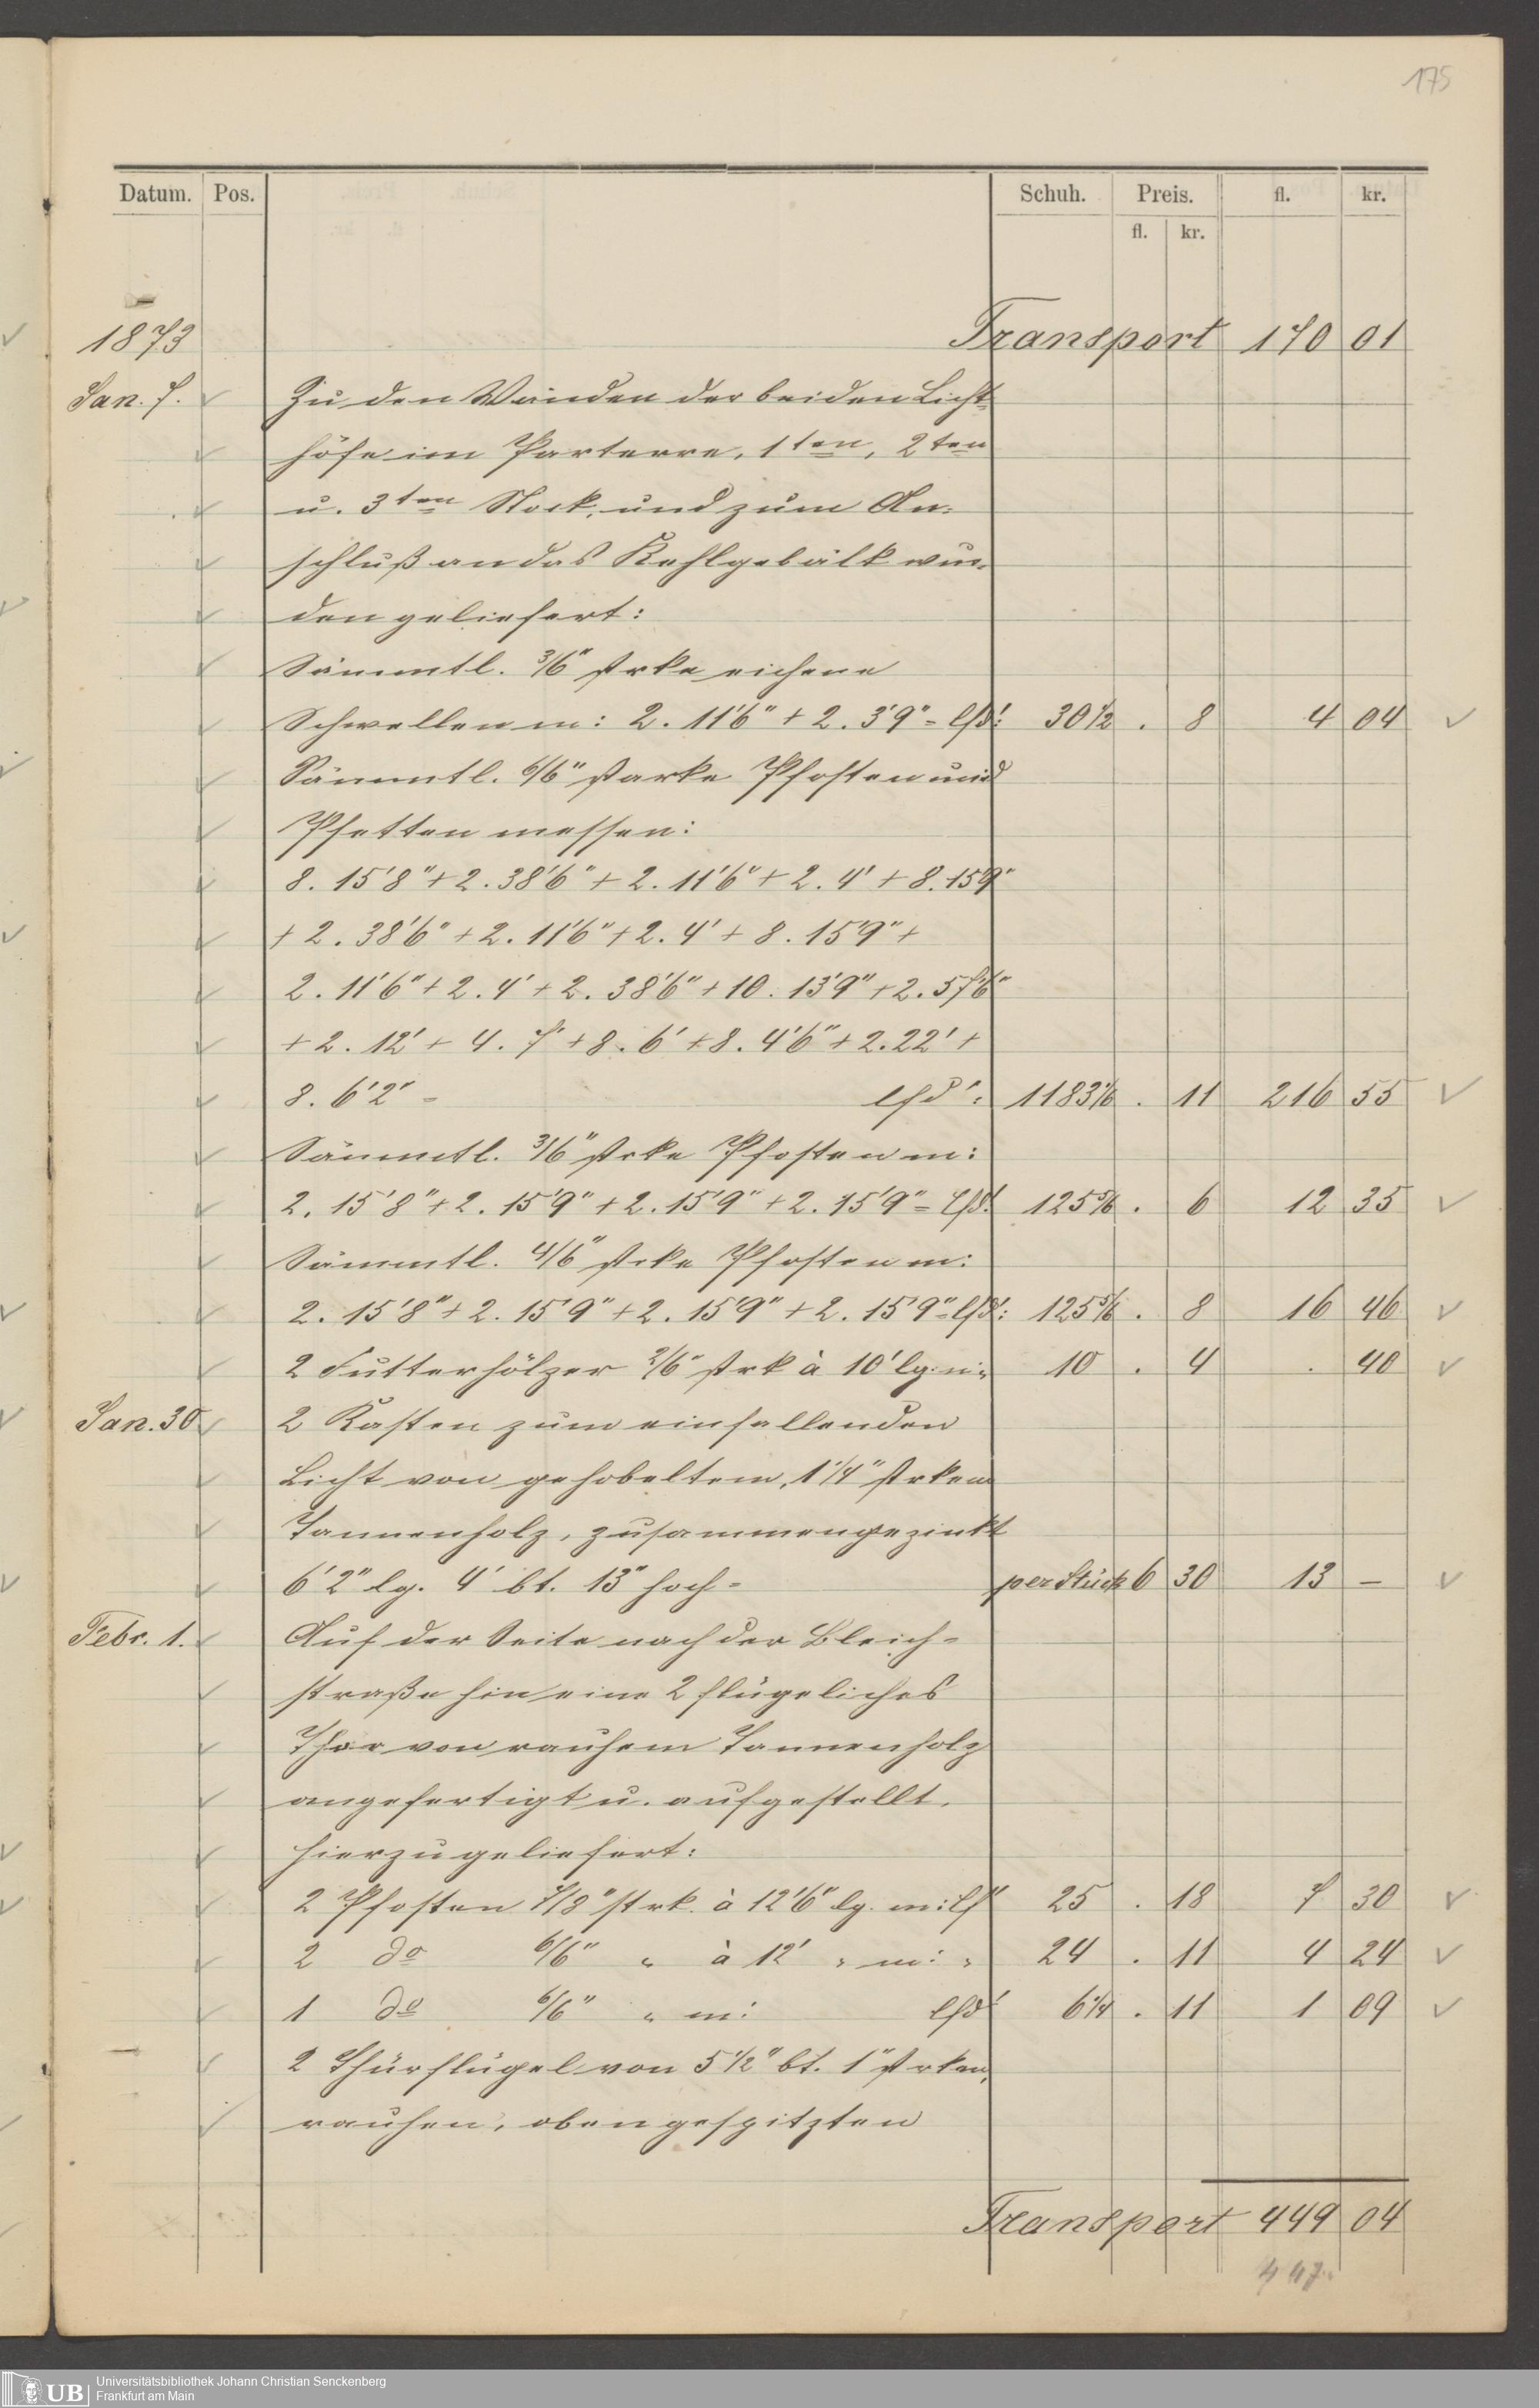 175
Datum. Pos. Schuh. Preis. fl. kr.
fl. kr.
1873 Transport 170 01
Jan. 7. Zu den Wänden der beiden Licht-
höfe im Parterre, 1ten, 2ten
u. 3ten Stock, und zum An-
schluß an das Kehlgebälk wur-
den geliefert:
Sämmtl. 3/6" strke eichene
Schwellen m: 2. 11'6" + 2. 3'9" = lfd': 30 1/2 . 8 4 04
Sämmtl. 6/6" starke Pfosten und
Pfetten messen:
8. 15'8" + 2. 38'6" + 2. 11'6" + 2. 4' + 8. 15'9"
+ 2. 38'6" + 2. 11'6" + 2. 4' + 8. 15'9" +
2. 11'6" + 2. 4' + 2. 38'6" + 10. 13'9" + 2. 57'6"
+ 2. 12' + 4. 7' + 8. 6' + 8. 4'6" + 2. 22' +
8. 6'2" = lfd': 1183 1/6 . 11 216 55
Sämmtl. 3/6" strke Pfosten m:
2. 15'8" + 2. 15'9" + 2. 15'9" + 2. 15'9" = lfd': 125 5/6 . 6 12 35
Sämmtl. 4/6" strke Pfosten m:
2. 15'8" + 2. 15'9" + 2. 15'9" + 2. 15'9" = lfd': 125 5/6 . 8 16 46
2 Futterhölzer 2/6" strk à 10' lg. m: 10 . 4 . 40
Jan. 30 2 Kasten zum einfallenden
Licht von gehobeltem, 1 1/4" strkem
Tannenholz, zusammengezinkt
6'2" lg. 4' bt. 13" hoch = per Stück 6 30 13 —
Febr. 1. Auf der Seite nach der Bleich-
straße hin eine 2 flügeliches
Thor von rauhem Tannenholz
angefertigt u. aufgestellt,
hierzu geliefert:
2 Pfosten 7/8" strk. à 12'6" lg. m: lf' 25 . 18 7 30
2 do 6/6" " à 12' " m: " 24 . 11 4 24
1 do 6/6" " m: lfd' 6 1/4 . 11 1 09
2 Thürflügel von 5 1/2" bt. 1" strken,
rauhen, oben gespitzten
Transport 449 04
447
Universitätsbibliothek Johann Christian Senckenberg
Frankfurt am Main
UB